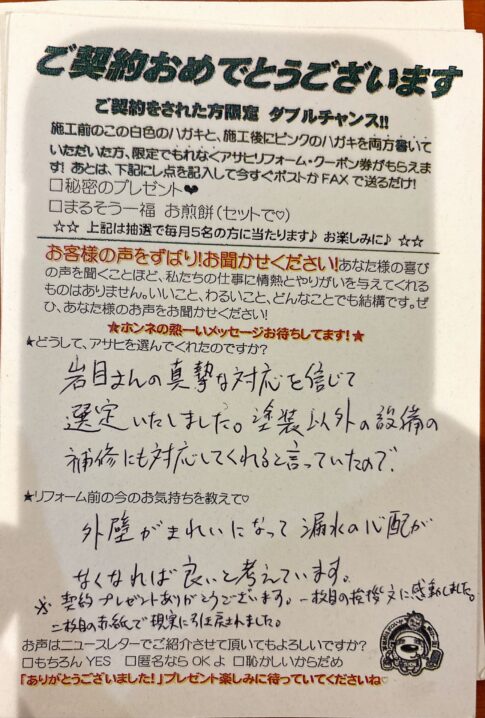 ご契約おめでとうございます
ご契約をされた方限定 ダブルチャンス!!
施工前のこの白色のハガキと、施工後にピンクのハガキを両方書いて
いただいた方、限定でもれなくアサヒリフォーム・クーポン券がもらえま
す! あとは、下記にレ点を記入して今すぐポストかFAXで送るだけ!
□秘密のプレゼント♥
□まるそう一福 お煎餅(セットで♡)
☆☆ 上記は抽選で毎月5名の方に当たります♪ お楽しみに♪ ☆☆
お客様の声をずばり!お聞かせください!あなた様の喜び
の声を聞くことほど、私たちの仕事に情熱とやりがいを与えてくれる
ものはありません。いいこと、わるいこと、どんなことでも結構です。ぜ
ひ、あなた様のお声をお聞かせください!
★ホンネの熱ーいメッセージお待ちしてます!★
★どうして、アサヒを選んでくれたのですか?
岩目さんの真摯な対応を信じて
選定いたしました。塗装以外の設備の
補修にも対応してくれると言っていたので。
★リフォーム前の今のお気持ちを教えて♡
外壁がきれいになって漏水の心配が
なくなれば良いと考えています。
※契約プレゼントありがとうございます。一枚目の挨拶文に感動しました。
二枚目の赤紙で現実に引き戻されました。
お声はニュースレターでご紹介させて頂いてもよろしいですか?
□もちろんYES □匿名ならOKよ □恥かしいからだめ
「ありがとうございました!」プレゼント楽しみに待っていてくださいね♡